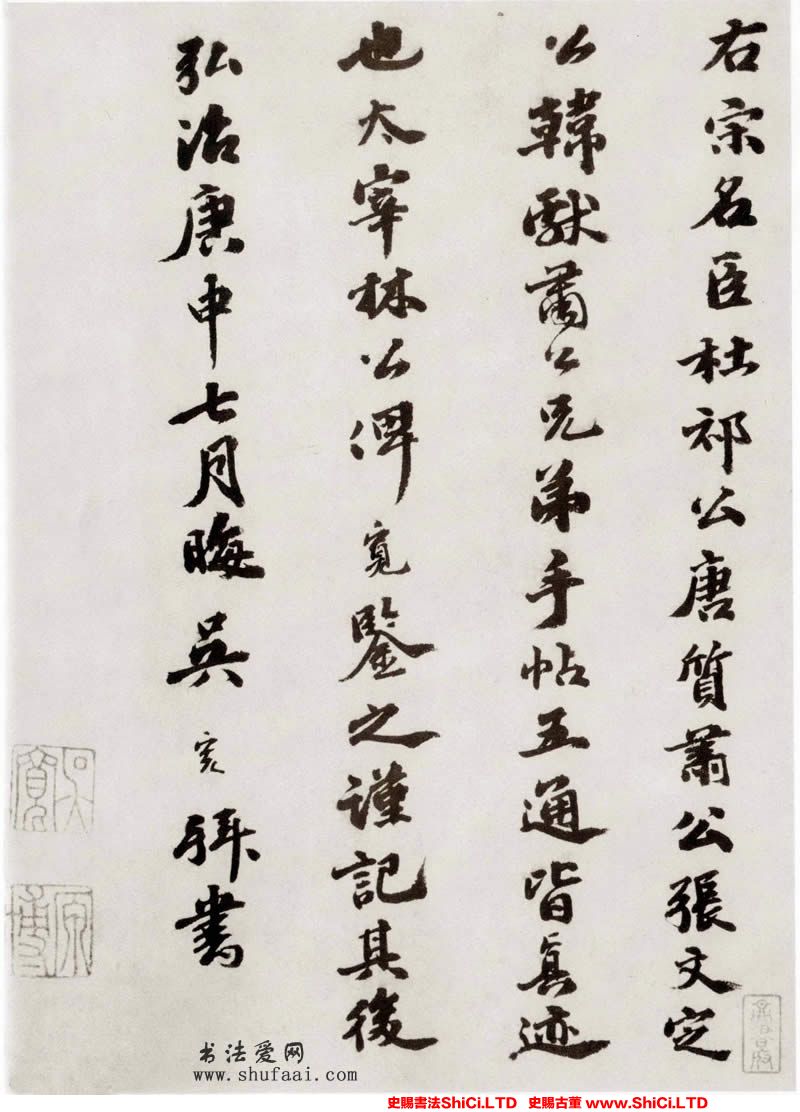 右宗名臣杜祁公唐質肅公張文定
公韓獻肅公兄弟手帖五通皆真迹
也太宰林公俾寬鑒之謹記其後
弘治庚申七月晦吳寬拜書
吳寬
原博
书法爱网
www.shufaai.com
史賜書法ShiCi.LTD 史賜古董 www.ShiCi.LTD